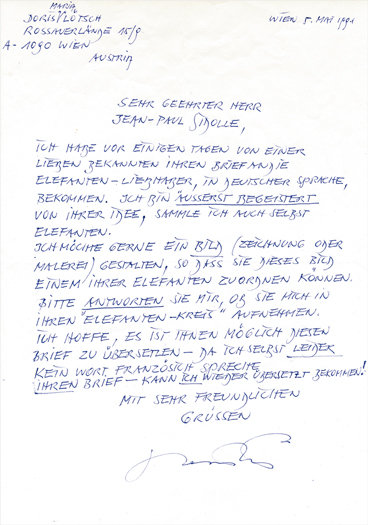 MARIA
DORIS PLÖTSCH
ROSSAUERLÄNDE 15/9
A - 1090 WIEN
AUSTRIA
WIEN 5. MAI 1991
SEHR GEEHRTER HERR
JEAN-PAUL SIDOLLE,
ICH HABE VOR EINIGEN TAGEN VON EINER
LIEBEN BEKANNTEN IHREN BRIEF AN DIE
ELEFANTEN-LIEBHABER, IN DEUTSCHER SPRACHE,
BEKOMMEN. ICH BIN ÄUSSERST BEGEISTERT
VON IHRER IDEE, SAMMLE ICH AUCH SELBST
ELEFANTEN.
ICH MÖCHTE GERNE EIN BILD (ZEICHNUNG ODER
MALEREI) GESTALTEN, SO DASS SIE DIESES BILD
EINEM IHRER ELEFANTEN ZUORDNEN KÖNNEN.
BITTE ANTWORTEN SIE MIR, OB SIE MICH IN
IHREN "ELEFANTEN-KREIS" AUFNEHMEN.
ICH HOFFE, ES IST IHNEN MÖGLICH DIESEN
BRIEF ZU ÜBERSETZEN - DA ICH SELBST LEIDER
KEIN WORT FRANZÖSICH SPRECHE
IHREN BRIEF - KANN ICH WIEDER ÜBERSETZT BEKOMMEN!
MIT SEHR FREUNDLICHEN
GRÜSSEN